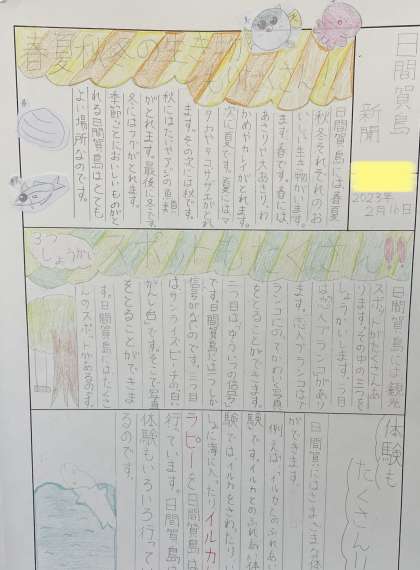 日間賀島
新聞
2023年
2月16日
春夏秋冬の生き物
たくさん!!
日間賀島には春夏
秋冬それぞれのお
いしい生き物がいま
す。春です。春には
あさりや大あさり、わ
かめやカキがとれます。
次に夏です。夏にはマ
ダカやタコやサザエがとれ
ます。その次には秋です。
秋にはたこやアジの
がとれます。最後に冬です。
冬にはフグがとれます。
季節ごとにおいしいものがと
れる日間賀島はとても
よい場所なのです。
3つ
しょうかい
スポットもたくさん!!
日間賀島には観光
スポットがたくさんあ
ります。その中の三つを
しょうかいします。一つ目
は「恋人ブランコ」があり
ます。恋人ブランコはブ
ランコにのってかわいく写真
をとることができます。
二つ目はゆういつの信号
です。日間賀島には一つしか
信号がないのです。三つ目
はサンライズビーチの白い
がんし台」です。そこで写真
をとることができま
す。日間賀島にはたくさ
んのスポットがあるのです。
体験も
たくさん!!
日間賀にはさまざまな体
ができます。
例えばイルカとのふれあい
験です。イルカとのふれあい体
験ではイルカをさわったり、い
しょに海に入ったりイルカ
ラピーを日間賀島は
行っています。日間賀島に
体験もいろいろ行って
るのです。